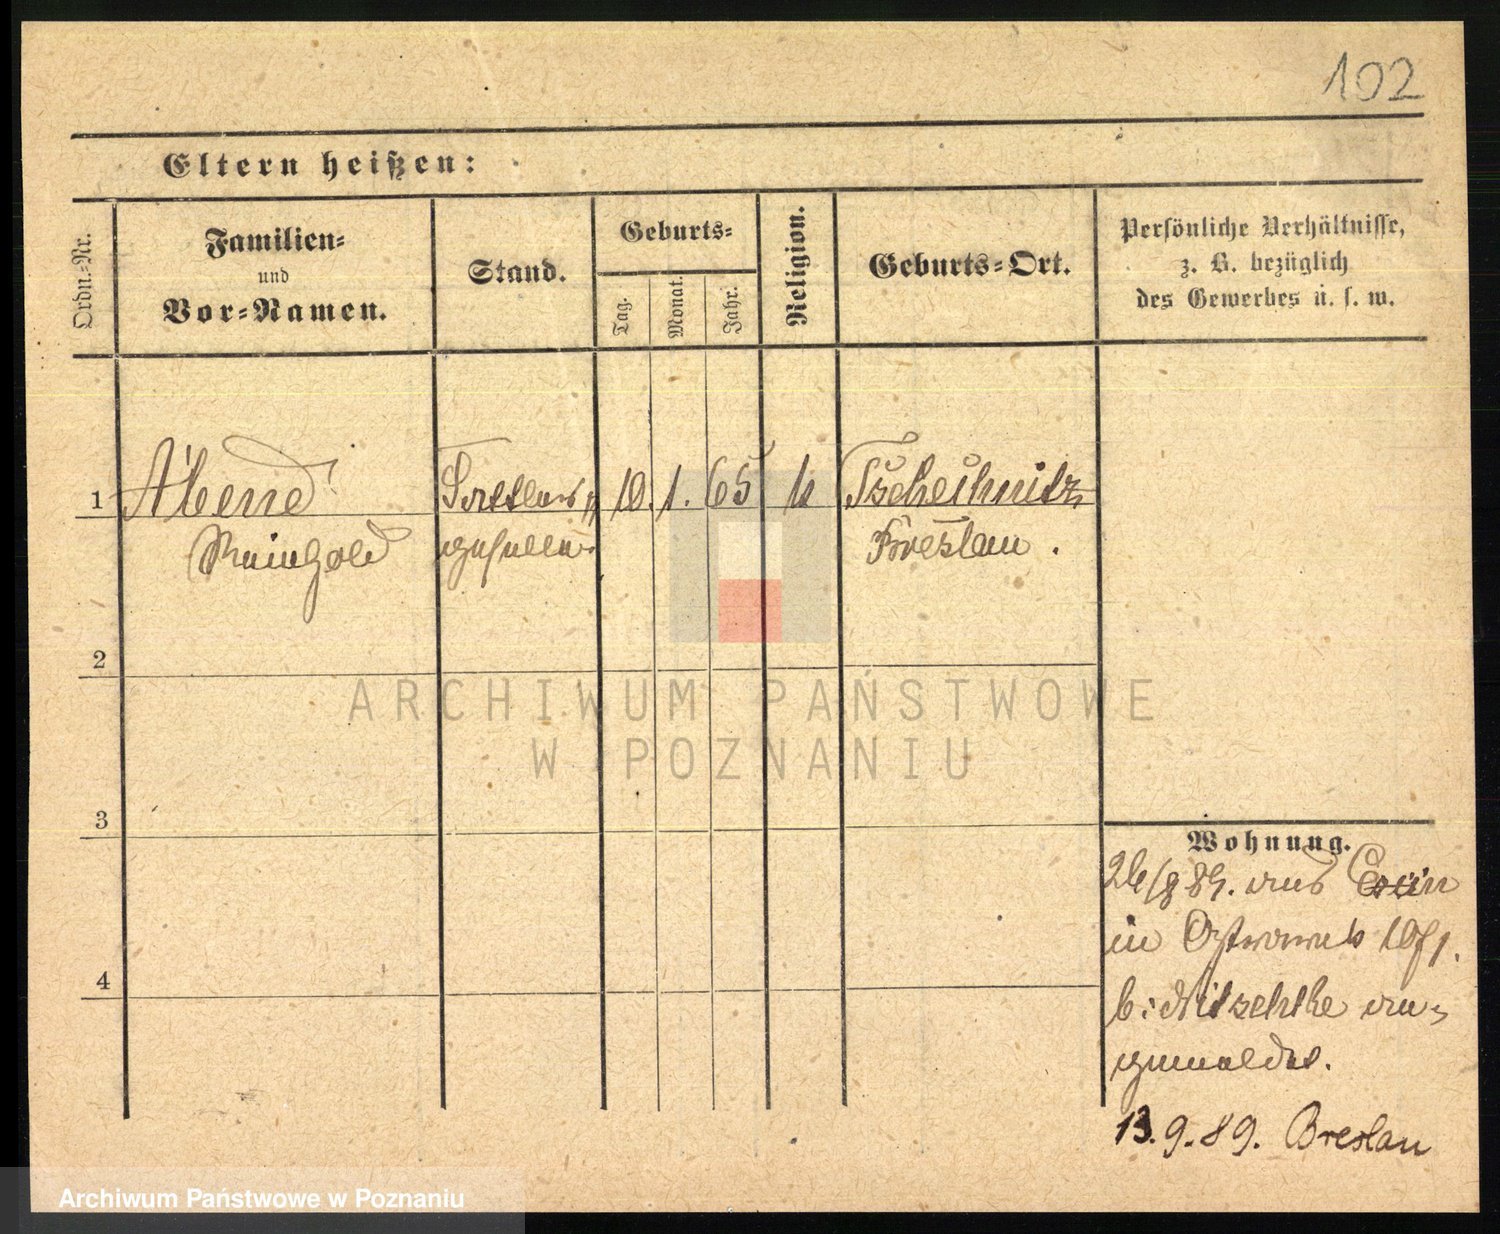 102
Eltern heißen:
Ordn.-Nr.
Familien-
und
Vor-Namen.
Stand.
Geburts-
Tag.
Monat.
Jahr.
Religion.
Geburts-Ort.
Persönliche Verhältnisse,
z. B. bezüglich
des Gewerbes u. s. w.
1 Abend 10. 1. 65 k Tschechnitz
Reinhold Breslau.
2
3
4
Wohnung.
26/8 89. aus Exin
in Ostrowek 10/1.
b. Nitschke an-
gemeldet.
13. 9. 89. Breslau
ARCHIWUM PAŃSTWOWE
W POZNANIU
Archiwum Państwowe w Poznaniu